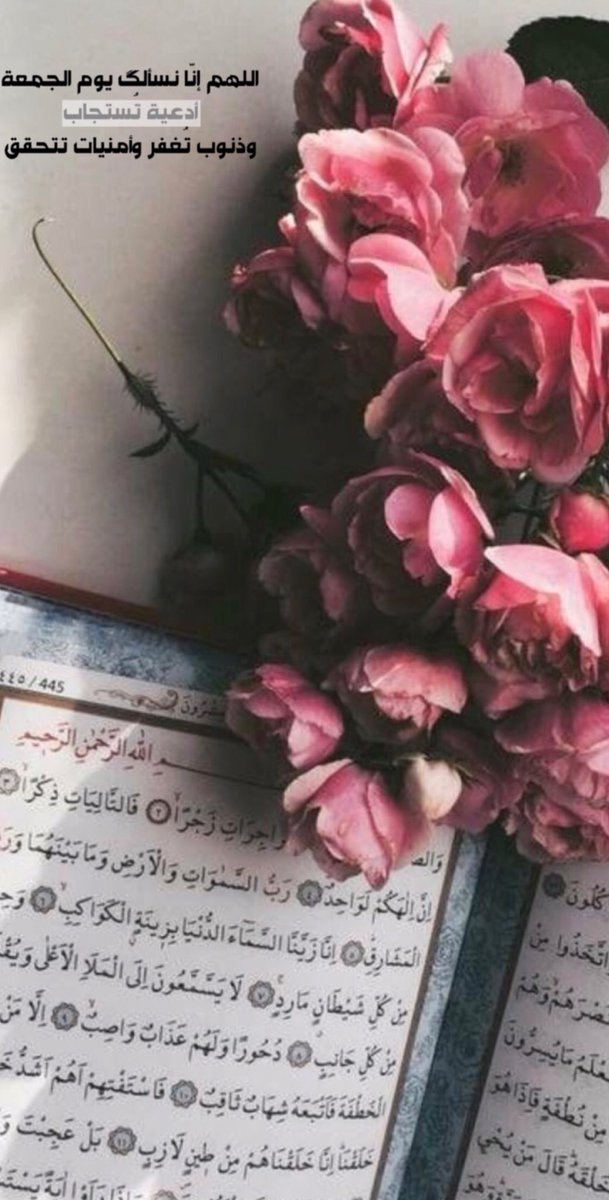 اللهم إنّا نسألك يوم الجمعة
أدعية تُستجاب
وذنوب تُغفر وأمنيات تتحقق
٤٤٥ / 445
ـمِ اللهِ الرَّحْمٰنِ الرَّحِيمِ
زَجْرًاۙ ٢ فَالتَّالِيَاتِ ذِكْرًاۙ
اِنَّ اِلٰهَكُمْ لَوَاحِدٌۜ ٤ رَبُّ السَّمٰوَاتِ وَالْاَرْضِ وَمَا بَيْنَهُمَا
الْمَشَارِقِۜ ٥ اِنَّا زَيَّنَّا السَّمَٓاءَ الدُّنْيَا بِزِينَةٍۨ الْكَوَاكِبِۙ ٦
مِنْ كُلِّ شَيْطَانٍ مَارِدٍۚ ٧ لَا يَسَّمَّعُونَ اِلَى الْمَلَأِ الْاَعْلٰى
مِنْ كُلِّ جَانِبٍۗ ٨ دُحُورًا وَلَهُمْ عَذَابٌ وَاصِبٌۙ ٩ اِلَّا مَنْ
الْخَطْفَةَ فَاَتْبَعَهُ شِهَابٌ ثَاقِبٌ ١٠ فَاسْتَفْتِهِمْ اَهُمْ اَشَدُّ
خَلَقْنَاۜ اِنَّا خَلَقْنَاهُمْ مِنْ طِينٍ لَازِبٍ ١١ بَلْ عَجِبْتَ
اتَّخَذُوا مِنْ
وَهُمْ
مَا يُسِرُّونَ
مِنْ نُطْفَةٍ فَاِذَا هُوَ
خَلْقَهُۜ قَالَ مَنْ يُحْيِ